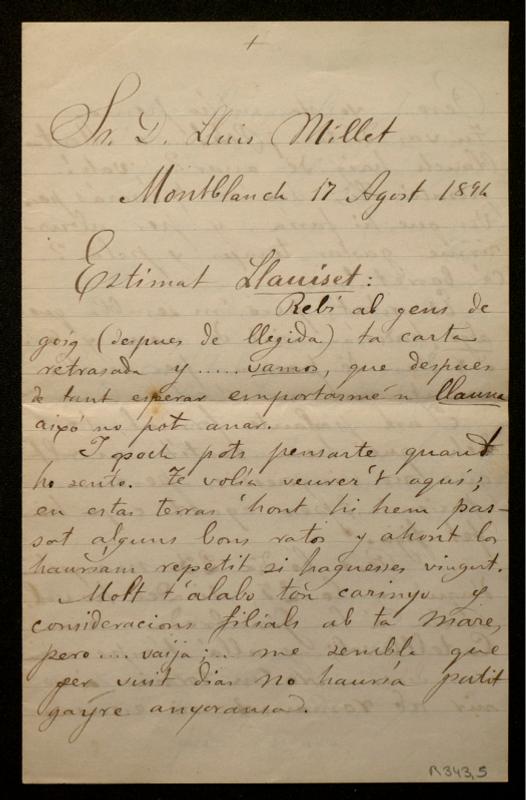 +
Sr. D. Lluis Millet
Montblanch 17 Agost 1894
Estimat Llauiset:
Rebí ab gens de
goig (despues de llegida) ta carta
retrasada y ..... vamos, que despues
de tant esperar emportarme'n llauna
aixó no pot anar.
T poch pots pensarte quant
ho sento. Te volía veurer't aquí;
en estas terras 'hont hi hem pas-
sat alguns bons ratos y ahont los
hauríam repetit si haguesses vingut.
Molt t'alabo ton carinyo y
consideracions filials ab ta mare,
pero .... vaija ... me sembla que
per vuit dias no hauría patit
gayre anyoransa.
R343,5